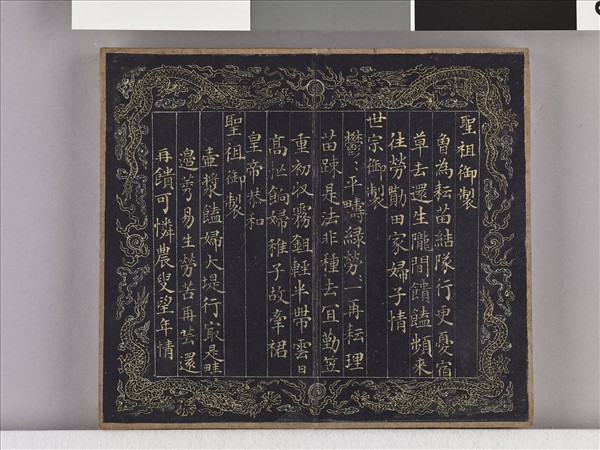 聖祖御製
曾為耘苗結隊行更憂宿
草去還生隴間饋饁頻來
往勞勩田家婦子情
世宗御製
鬱〻平疇綠勞〻一再耘理
苗疎是法非種去宜勤笠
重初收霧鉏輕半帶雲日
高忙餉婦稚子故牽裙
皇帝恭和
聖祖御製
壺漿饁婦大堤行最是畦
邊莠易生勞苦再芸還
再饋可憐農叟望年情